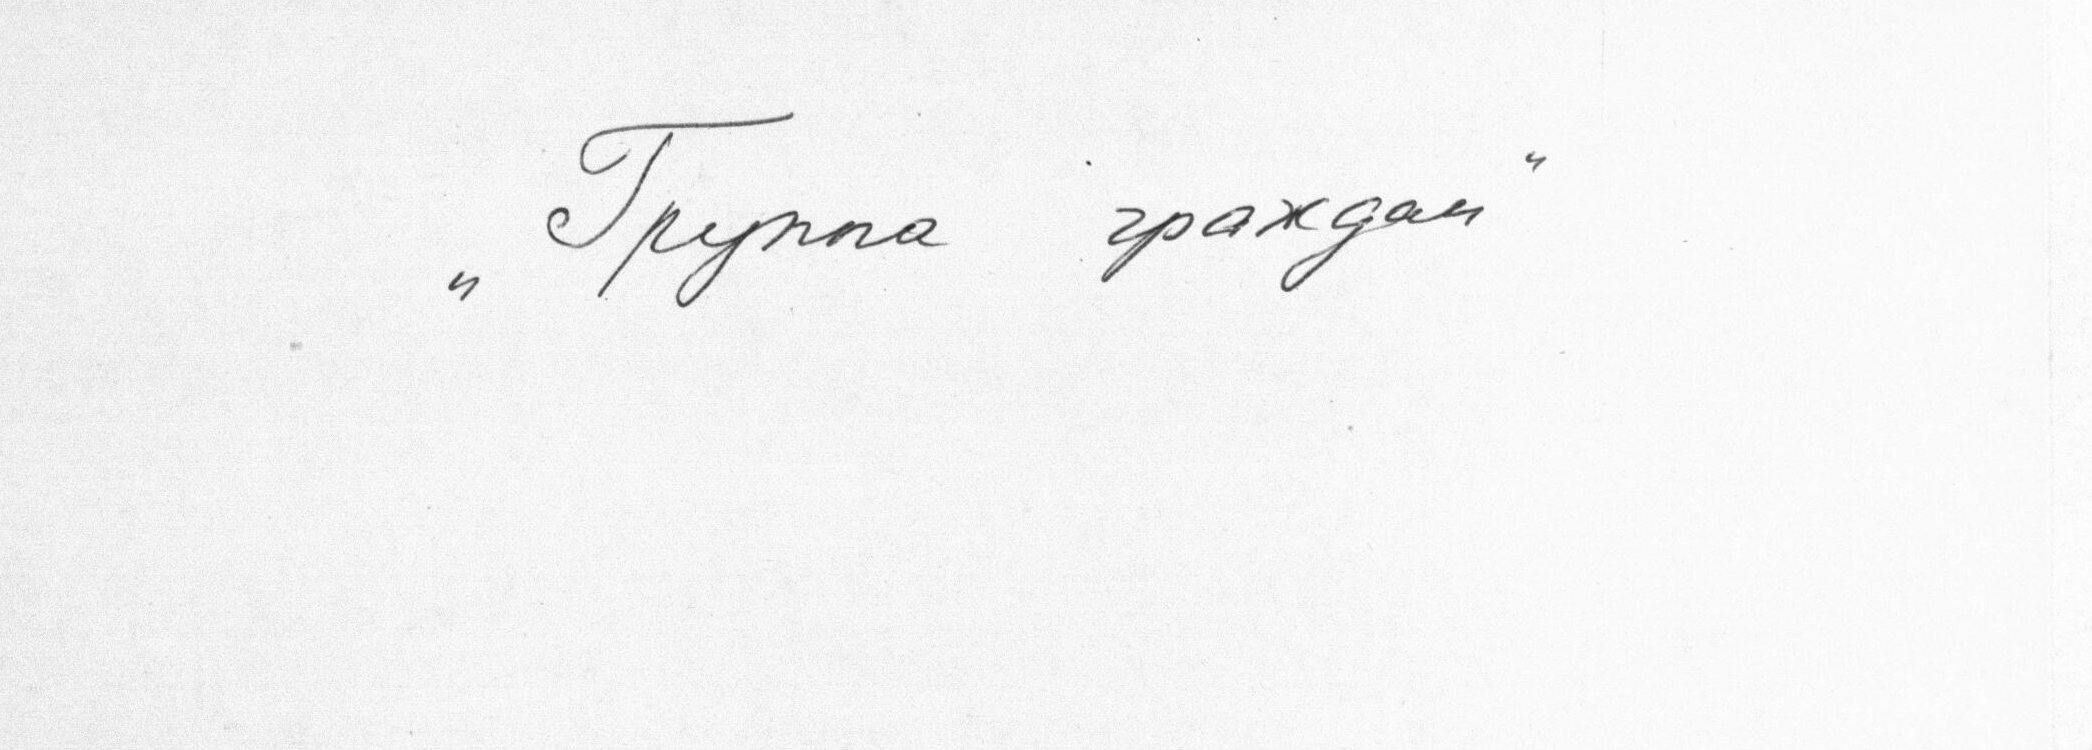 „Группа граждан“